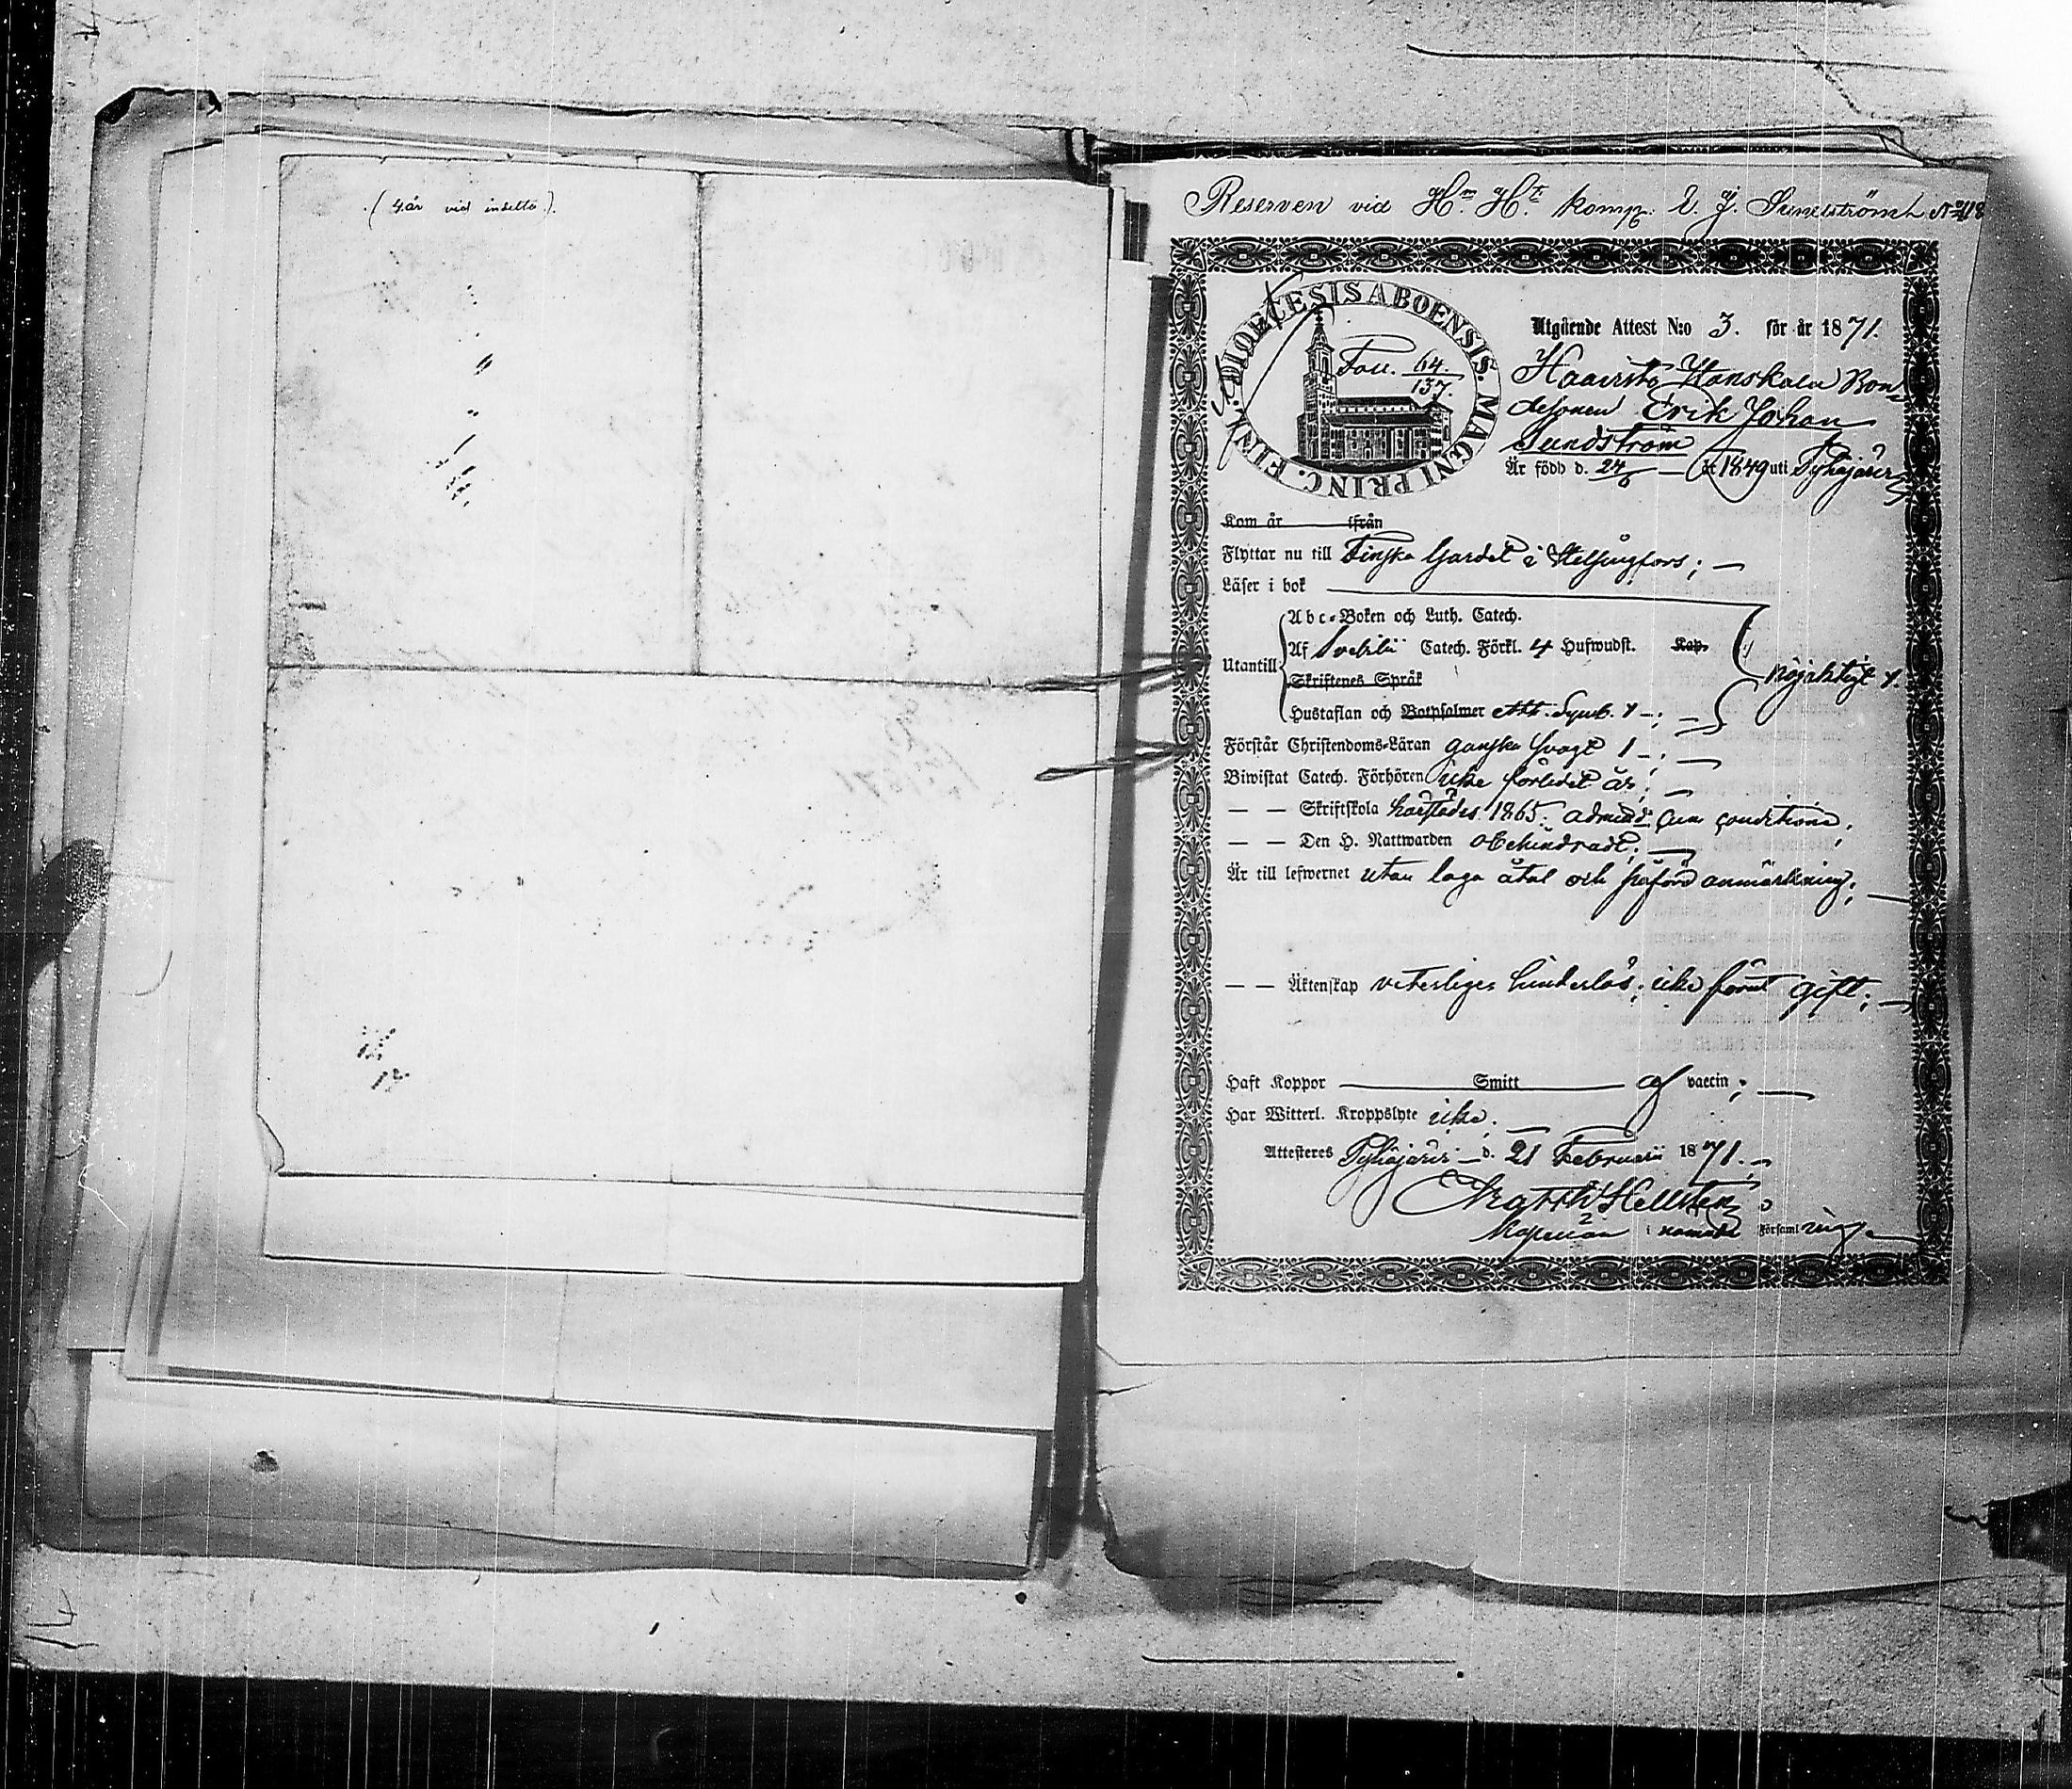 ( 4 år vid indelta ).
Reserven vid H.m H.t komp. E. J. Sundström N:o 118
DIOECESIS ABOENSIS. MAGNI PRINC. FINL.
Foll. 64. 137.
Utgående Attest N:o 3. för år 1871.
Haavisto Hanskala Bon-
desonen Erik Johan
Sundström
Är född d. 24/6 — år 1849 uti Pyhäjärvi
Kom år ifrån
Flyttar nu till Finska Gardet i Helsingfors; —
Läser i bok
Abc-Boken och Luth. Catech.
Utantill Af Svebilii Catech. Förkl. 4 Hufwudst. Kap. nöjaktigt
Skriftenes Språk
Hustaflan och Botpsalmer Ath. Symb. —;—
Förstår Christendoms-Läran ganska svagt —;—
Biwistat Catech. Förhören icke förledet år; —
— — Skriftskola härstädes 1865. cum conditione.
— — Den H. Nattwarden obehindradt; —
Är till lefwernet utan laga åtal och påförd anmärkning; —
— — Äktenskap veterligen hinderlös; icke förut gift; —
Haft Koppor Smitt af vaccin; —
Har Witterl. Kroppslyte icke. —
Attesteres Pyhäjärvi — d. 21 Februarii 1871. —
Matth Hellsten
Kapellan i nämnde Församling. —